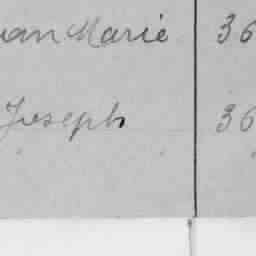 ean Marie 36
Joseph 36